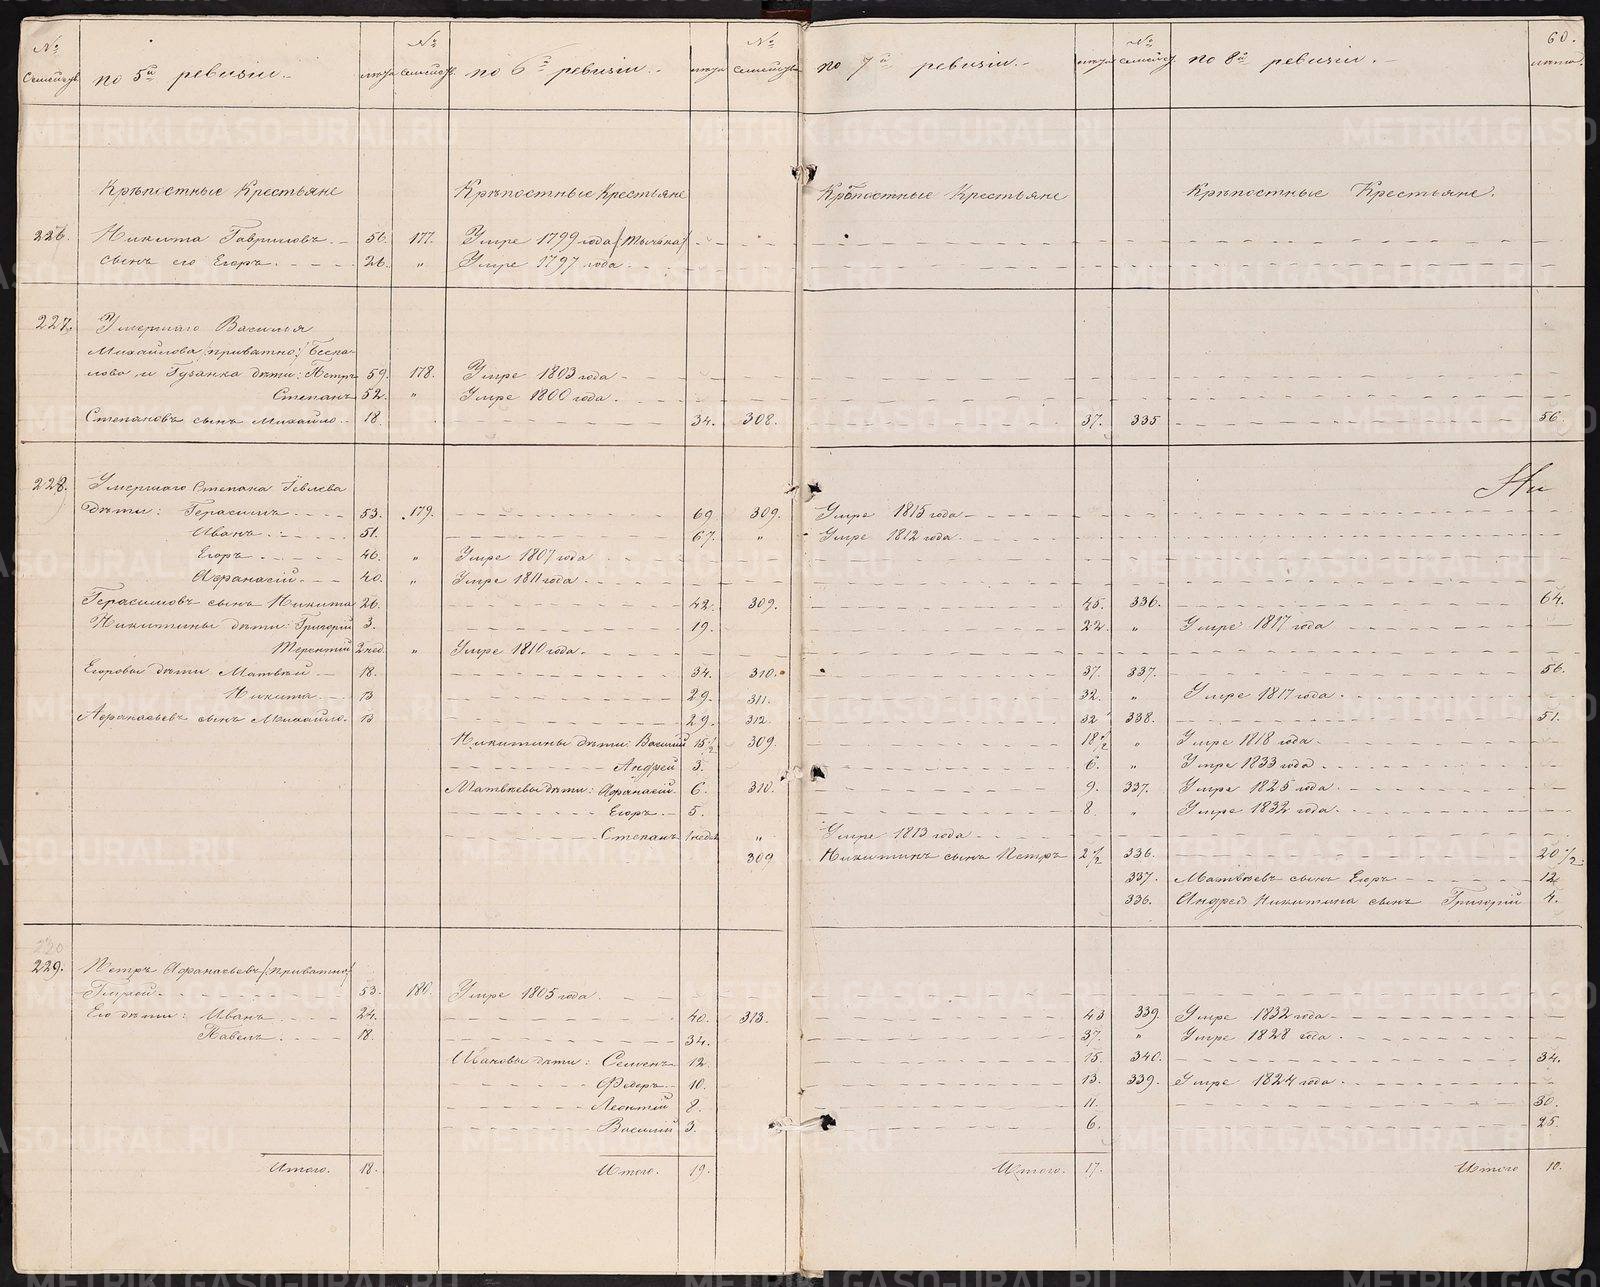 60.
№ семействъ по 5й ревизіи. лѣта № семействъ по 6й ревизіи. лѣта № семействъ по 7й ревизіи. лѣта № семейст. по 8й ревизіи. лѣта
Крѣпостные Крестьяне Крѣпостные Крестьяне Крѣпостные Крестьяне Крѣпостные Крестьяне.
226. Никита Гавриловъ. 56. 177. Умре 1799 года
сынъ его Егоръ. 26. „ Умре 1797 года.
227. Умершаго Василья
Михайлова /приватно:/ Беспа-
лова и Гузанка дѣти: Петръ 59. 178. Умре 1803 года
Степанъ 52. „ Умре 1800 года.
Степановъ сынъ Михайло. 18. 34. 308. 37. 335 56.
228. Умершаго Степана Іевлева Ни
дѣти: Герасимъ. 53. 179. 69. 309. Умре 1815 года
Иванъ. 51. 67. „ Умре 1812 года.
Егоръ. 46. „ Умре 1807 года
Афанасій. 40. „ Умре 1811 года.
Герасимовъ сынъ Никита 26. 42. 309. 45. 336. 64.
Никитины дѣти: Григорій 3. 19. 22. „ Умре 1817 года
Терентій 2 нед. „ Умре 1810 года.
Егоровы дѣти Матвѣй 18. 34. 310. 37. 337. 56.
Никита. 13 29. 311. 32. „ Умре 1817 года.
Афанасьевъ сынъ Михайло. 13 29. 312. 32 338. 51.
Никитины дѣти: Василій 15 1/2 309. 18 1/2 „ Умре 1818 года.
Андрей 3. 6. „ Умре 1833 года.
Матвѣевы дѣти: Афанасій. 6. 310. 9. 337. Умре 1825 года
Егоръ. 5. 8. „ Умре 1832 года.
Степанъ 1 недѣл „ Умре 1813 года
309 Никитинъ сынъ Петръ 2 1/2 336. 20 1/2
337. Матвѣевъ сынъ Егоръ 12.
336. Андрея Никитина сынъ Григорій 4.
229. Петръ Афанасьевъ /:приватно/
53. 180. Умре 1805 года.
Его дѣти: Иванъ 24. 40. 313. 43 339. Умре 1832 года
Павелъ. 18. 34. 37. „ Умре 1828 года.
Ивановы дѣти: Семенъ 12. 15. 340. 34.
Федоръ. 10. 13. 339. Умре 1824 года.
Леонтій 8. 11. 30.
Василій 3. 6. 25.
Итого. 18. Итого. 19. Итого. 17. Итого 10.
METRIKI.GASO-URAL.RU